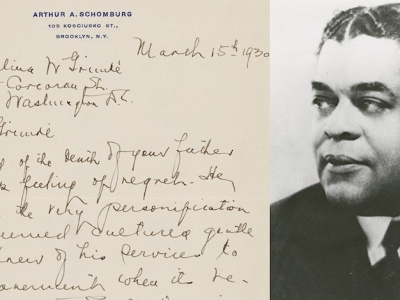 ARTHUR A. SCHOMBURG
105 KOSCIUSKO ST.,
BROOKLYN, N.Y.
March 15th 1930
lina W Grimké
Corcoran St.
Washington D.C.
Grimké
of the Death of your father
feeling of regret. He
the very personification
cultured gentle
knew of his services to
when it be-